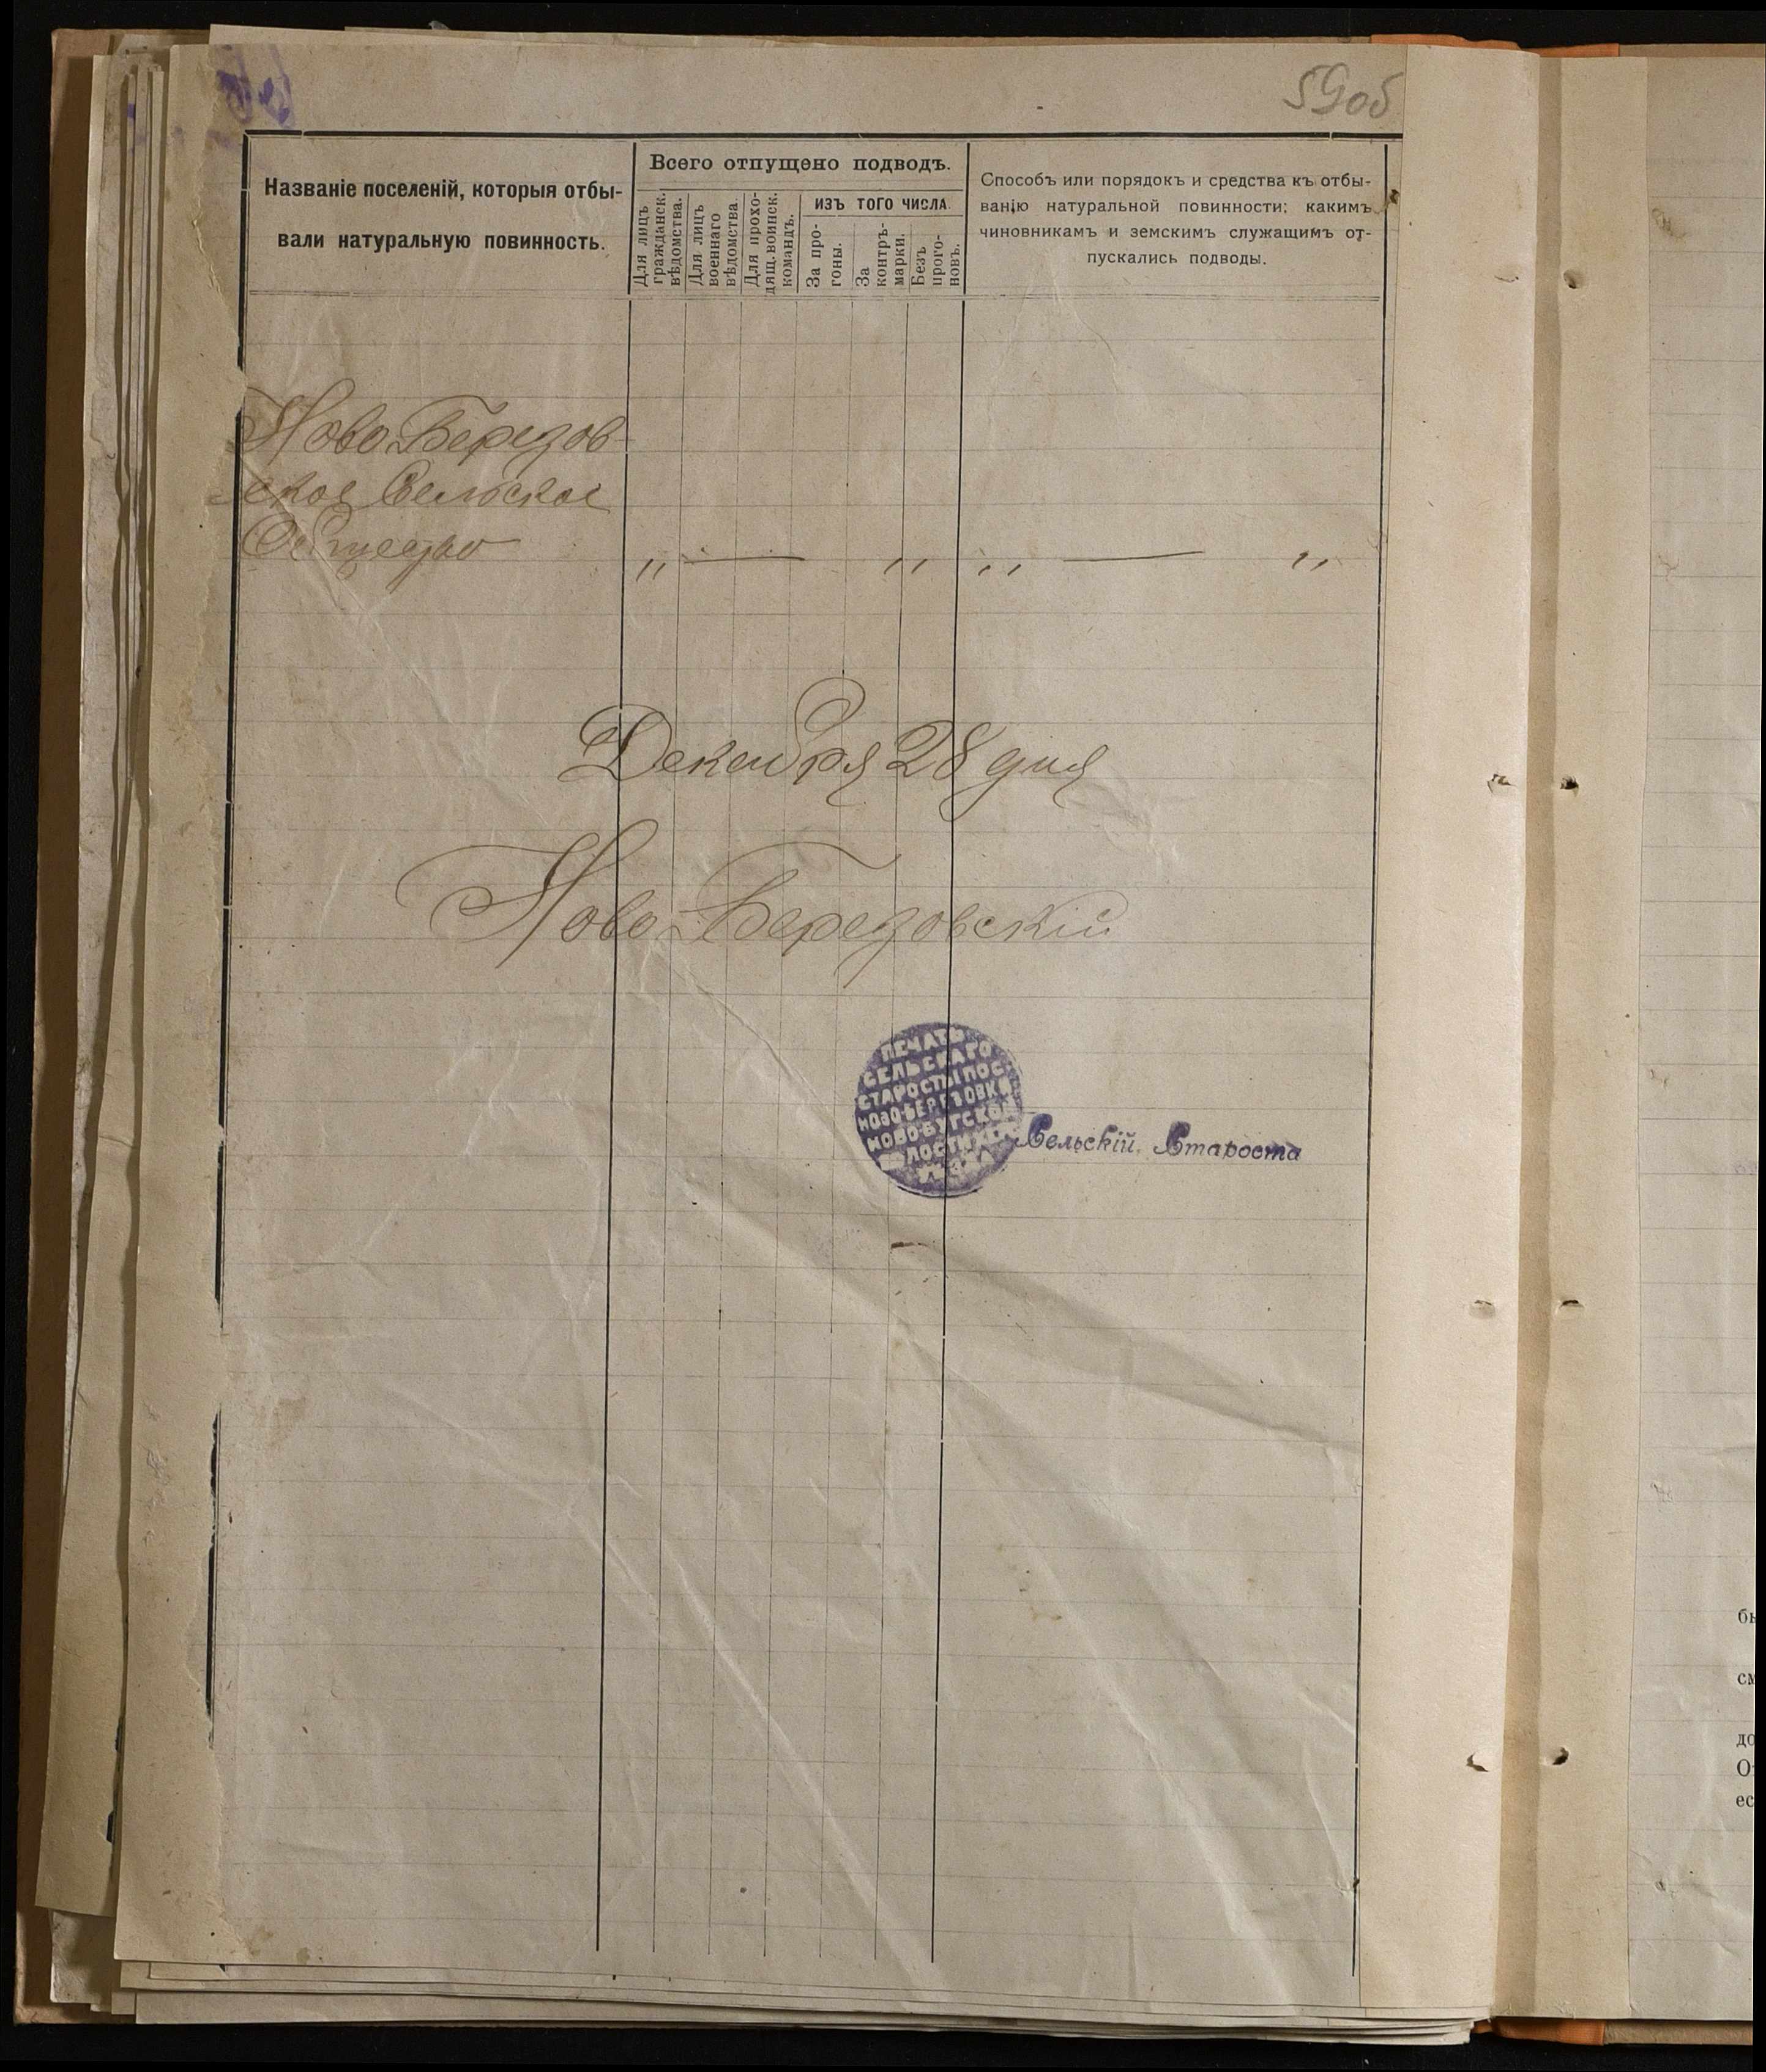 59об
Названіе поселеній, которыя отбы-
вали натуральную повинность.
Всего отпущено подводъ.
Для лицъ
гражданск.
вѣдомства.
Для лицъ
военнаго
вѣдомства.
Для прохо-
дящ. воинск.
командъ.
изъ того числа
За про-
гоны.
За
контръ-
марки.
Безъ
прого-
новъ.
Способъ или порядокъ и средства къ отбы-
ванію натуральной повинности; какимъ
чиновникамъ и земскимъ служащимъ от-
пускались подводы.
Ново Березов-
ское Сельское
Общество
„ — „ „ — „
Декабря 28 дня
Ново-Березовскій
ПЕЧАТЬ
СЕЛЬСКАГО
СТАРОСТЫ ПОС.
НОВО-БЕРЕЗОВКИ
НОВО-БУГСКОЙ
ВОЛОСТИ ХЕР.
УѢЗДА
Сельскій Староста
бы
см
до
ес